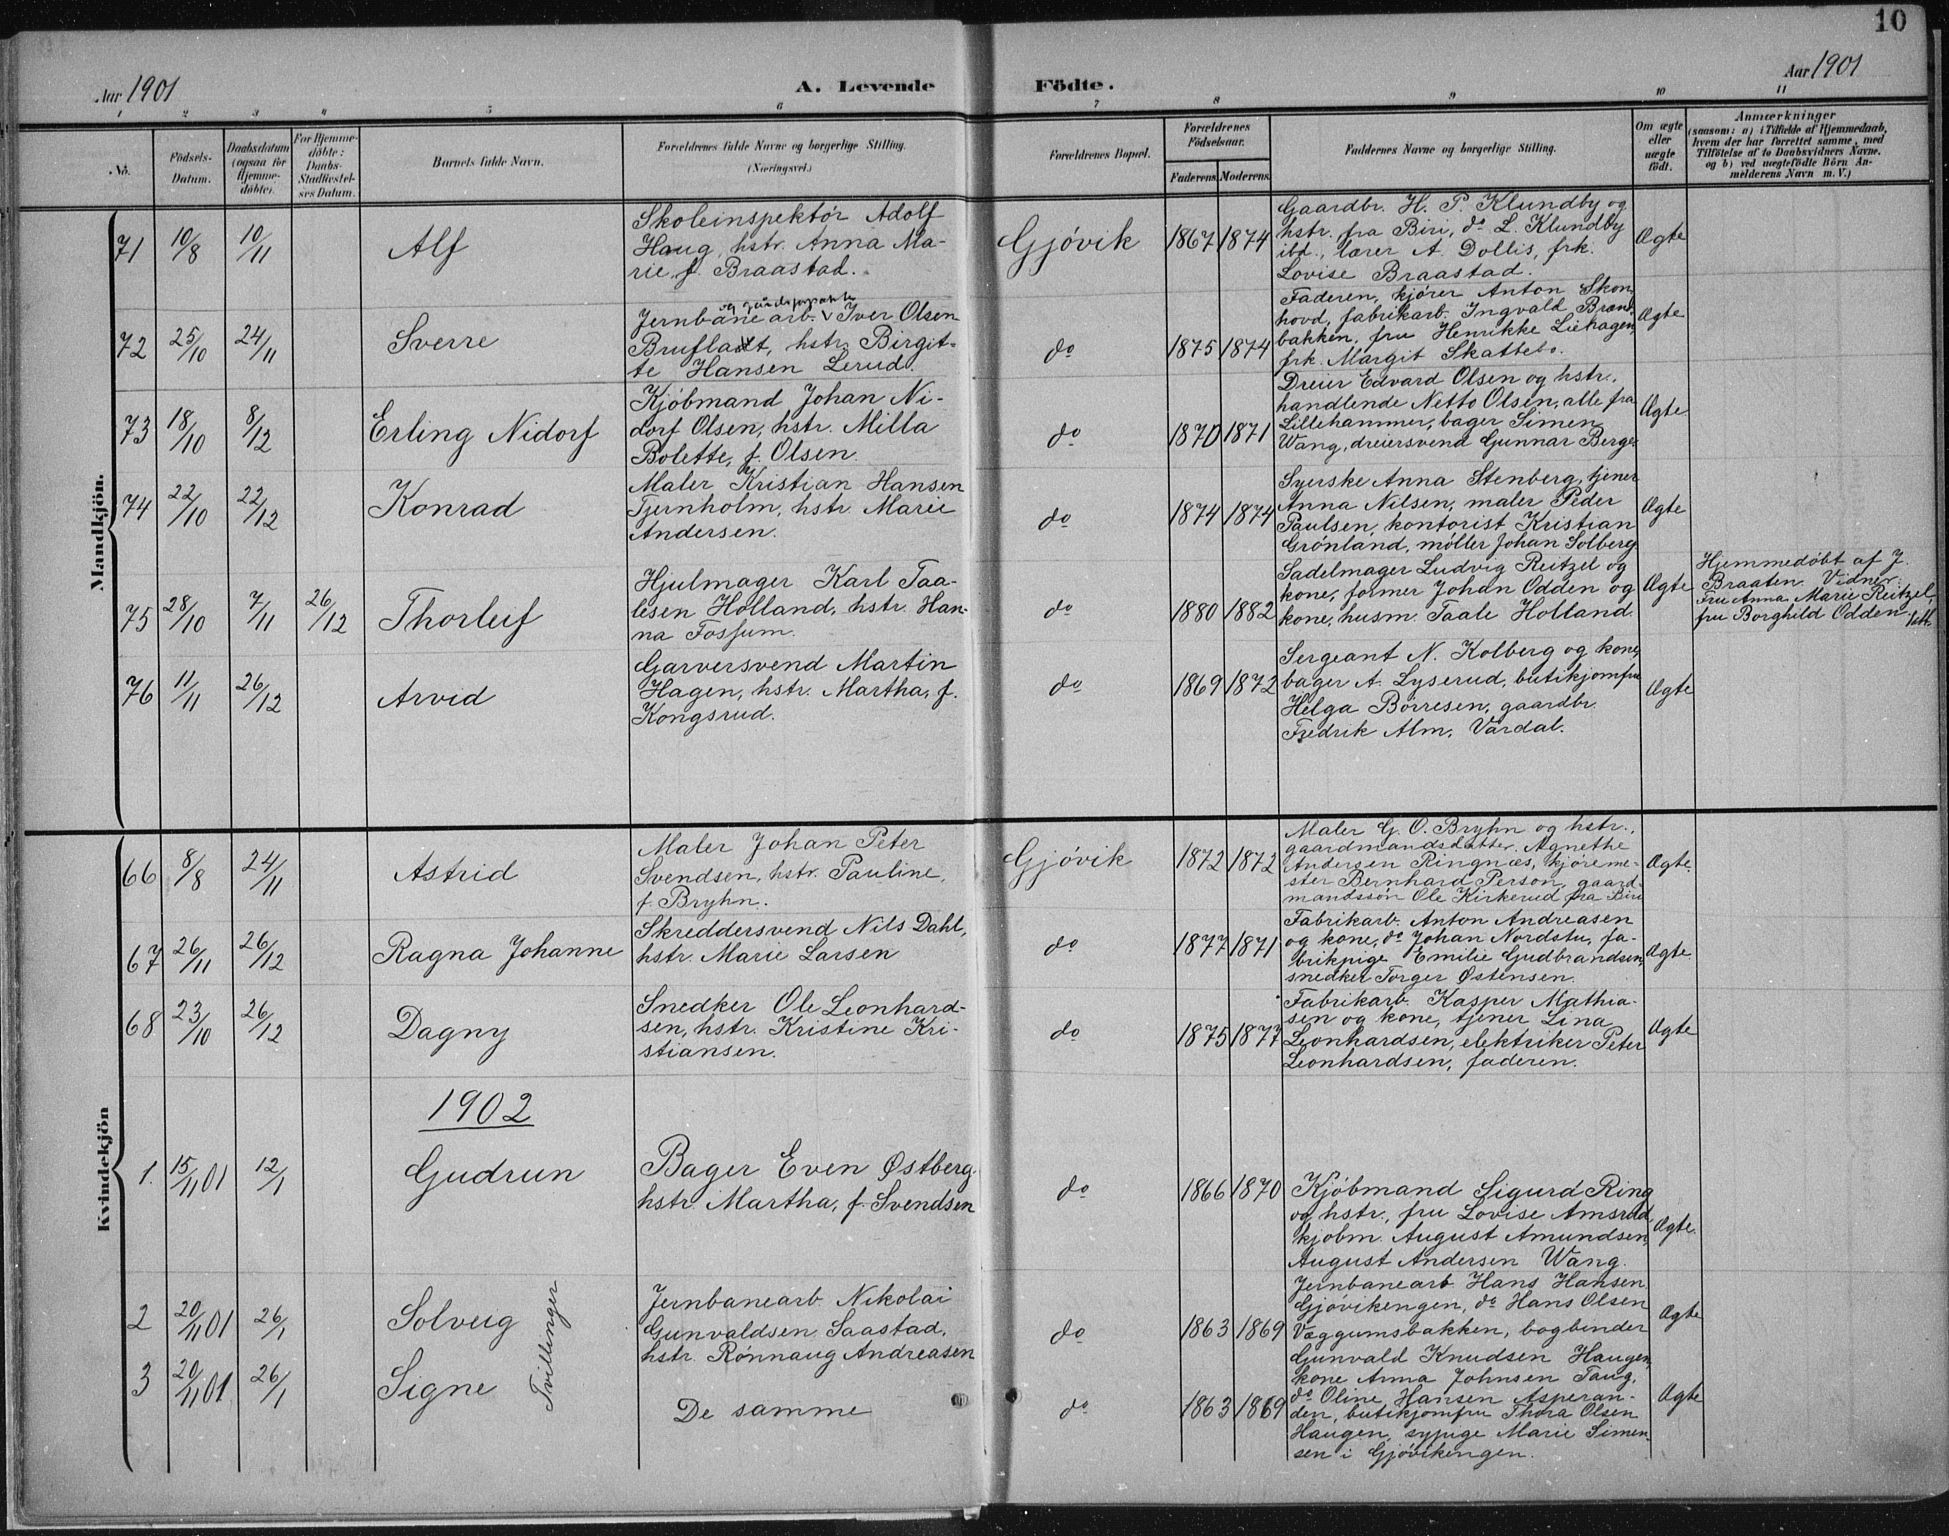 10
Aar 1901
A. Levende Födte.
Aar 1901
1 2 3 4 5 6 7 8 9 10 11
No.
Födsels-Datum.
Daabsdatum (ogsaa for Hjemme-döbte).
For Hjemme-döbte: Daabs-Stadfæstel-ses Datum.
Barnets fulde Navn.
Forældrenes fulde Navne og borgerlige Stilling.
(Næringsvei.)
Forældrenes Bopæl.
Forældrenes Födselsaar.
Faderens. Moderens.
Faddernes Navne og borgerlige Stilling.
Om ægte eller uægte födt.
Anmærkninger
(saasom: a) i Tilfælde af Hjemmedaab,
hvem der har forrettet samme, med
Tilföielse af to Daabsvidners Navne.
og b) ved uægtefödte Börn An-
melderens Navn m. V.)
Mandkjön.
71 10/8 10/11 Alf
Skoleinspektör Adolf
Haug, hstr. Anna Ma-
rie, f. Braastad.
Gjövik 1867 1874
Gaardbr. H. P. Klundby og
hstr. fra Biri, do L. Klundby
ibd., lærer A. Dollis, frk.
Lovise Braastad.
Ægte
72 25/10 24/11 Sverre
og
Jernbanearb. Iver Olsen
Brufladt, hstr. Birgit-
te Hansen Lerud.
do 1875 1874
Faderen, kjører Anton Skon-
hovd, fabrikarb. Ingvald Brænd-
bakken, fru Henrikke Liehagen,
frk. Margit Skattebo.
Ægte
73 18/10 8/12 Erling Nidorf
Kjöbmand Johan Ni-
dorf Olsen, hstr. Milla
Bolette, f. Olsen.
do 1870 1871
Dreier Edvard Olsen og hstr.,
handlende Netto Olsen, alle fra
Lillehammer, bager Simen
Wang, dreiersvend Gunnar Berge.
Ægte
74 22/10 22/12 Konrad
Maler Kristian Hansen
Tjernholm, hstr. Marie
Andersen.
do 1874 1874
Syerske Anna Stenberg, tjener
Anna Nilsen, maler Peder
Paulsen, kontorist Kristian
Grönland, möller Johan Solberg
Ægte
75 28/10 7/11 26/12 Thorleif
Hjulmager Karl Taa-
lesen Holland, hstr. Han-
na Fossum.
do 1880 1882
Sadelmager Ludvig Reitzel og
kone, former Johan Odden og
kone, husm. Taale Holland.
Ægte
Hjemmedöbt af J.
Braaten. Vidner:
Fru Anna Marie Reitzel,
fru Borghild Odden
76 11/11 26/12 Arvid
Garversvend Martin
Hagen, hstr. Martha, f.
Kongsrud.
do 1869 1872
Sergeant N. Kolberg og kone,
bager A. Lyserud, butikjomfru
Helga Börresen, gaardbr.
Fredrik Alm, Vardal.
Ægte
Kvindekjön
66 8/8 24/11 Astrid
Maler Johan Peter
Svendsen, hstr. Pauline,
f. Bryhn.
Gjövik 1872 1872
Maler G. O. Bryhn og hstr.,
gaardmandsdatter Agnethe
Andersen Ringnæs, kjöreme-
ster Bernhard Person, gaard-
mandssön Ole Kirkerud fra Biri
Ægte
67 26/11 26/12 Ragna Johanne
Skreddersvend Nils Dahl,
hstr. Marie Larsen
do 1877 1871
Fabrikarb. Anton Andreasen
og kone, do Johan Nordstu, fa-
brikpige Emilie Gudbrandsen,
snedker Torger Østensen.
Ægte
68 23/10 26/12 Dagny
Snedker Ole Leonhard-
sen, hstr. Kristine Kri-
stiansen.
do 1875 1877
Fabrikarb. Kasper Mathia-
sen og kone, tjener Lina
Leonhardsen, elektriker Peter
Leonhardsen, faderen.
Ægte
1902
1. 15/11 01 12/1 Gudrun
Bager Even Østberg.
hstr. Martha, f. Svendsen
do 1866 1870
Kjöbmand Sigurd Ring
og hstr., fru Lovise Amsrud
kjobm. August Amundsen,
August Andersen Wang.
Ægte
2 20/11 01 26/1 Solveig
Tvillinger
Jernbanearb. Nikolai
Gunvaldsen Saastad,
hstr. Rönnaug Andreasen
do 1863 1869
Jernbanearb. Hans Hansen
Gjövikengen, do Hans Olsen
Væggumsbakken, bogbinder
Gunvald Knudsen Haugen,
kone Anna Johnsen Taug,
do Oline Hansen Asperan-
den, butikjomfru Thora Olsen
Haugen, sypige Marie Simen-
sen i Gjövikengen.
Ægte
3 20/11 01 26/1 Signe
De samme
do 1863 1869
Ægte